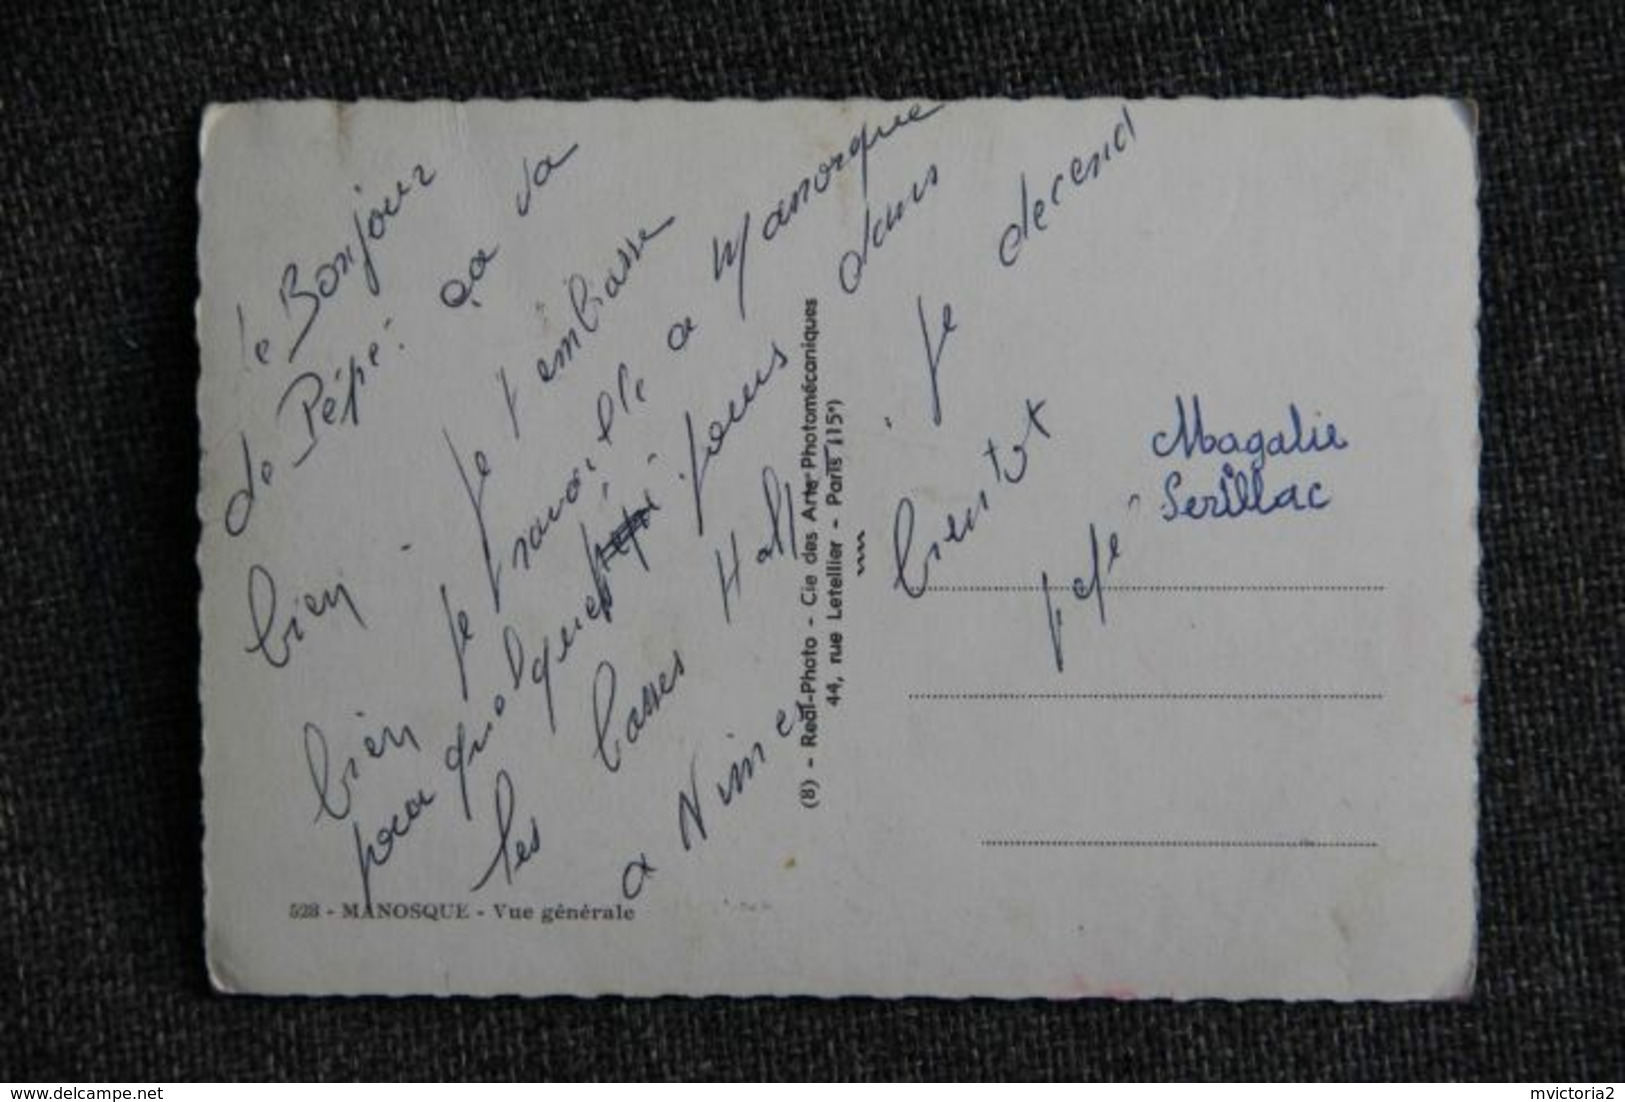 le Bonjour
de Pépé. ça va
bien - Je t'embrasse
bien Je travaille a Manorque
pour quelques jours dans
les basses Hall. Je decend
a Nimes bientot
pepe
Magalie
Serillac
528 - MANOSQUE - Vue générale
(8) - Real-Photo - Cie des Arts Photomécaniques
44, rue Letellier - Paris (15e)
delcampe.net
mvictoria2